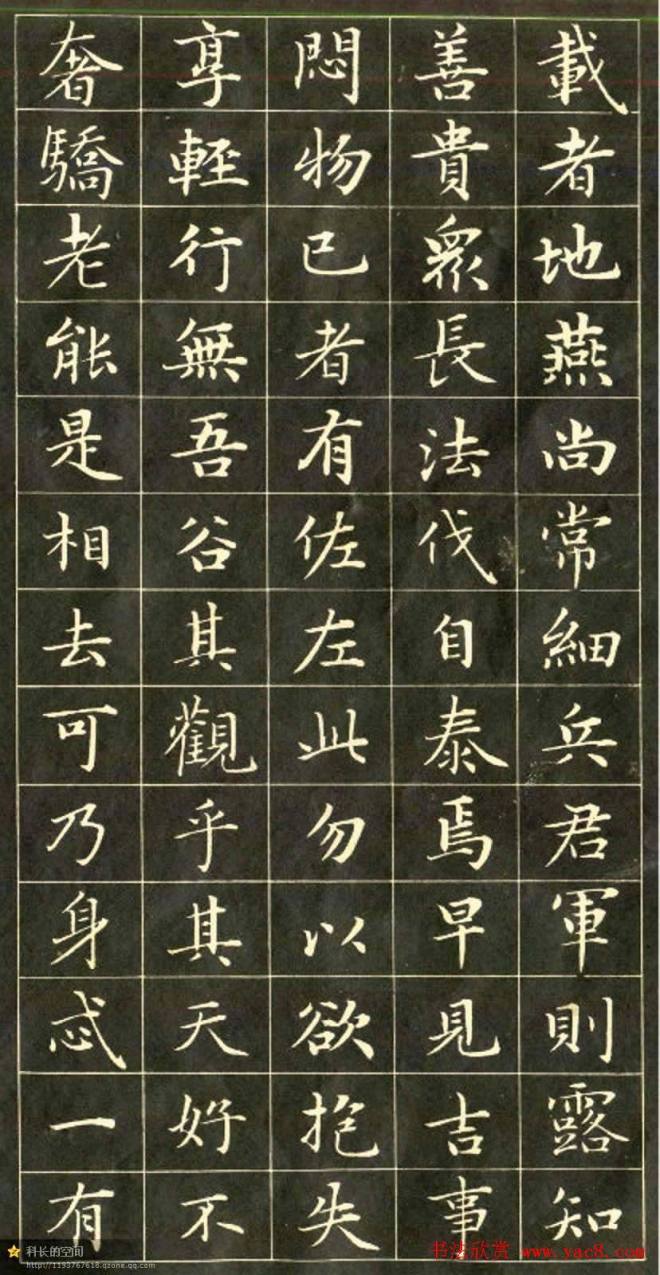 載者地燕尚常細兵君軍則露知
善貴眾長法伐自泰焉早見吉事
悶物已者有佐左此勿以欲抱失
享輕行無吾谷其觀乎其天好不
奢驕老能是相去可乃身忒一有
科长的空间
http://1193767618.qzone.qq.com
书法欣赏 www.yac8.com